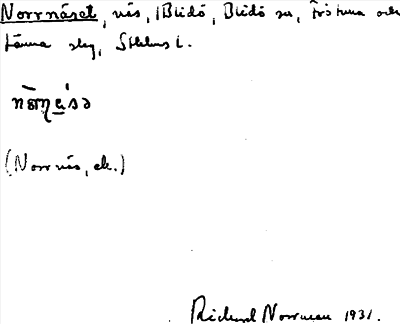 Norrnäset, näs, i Blidö, Blidö sn, Frötuna och
Länna skg, Sthlms l.
(Norrnäs, ek.)
Richard Norrman 1931.